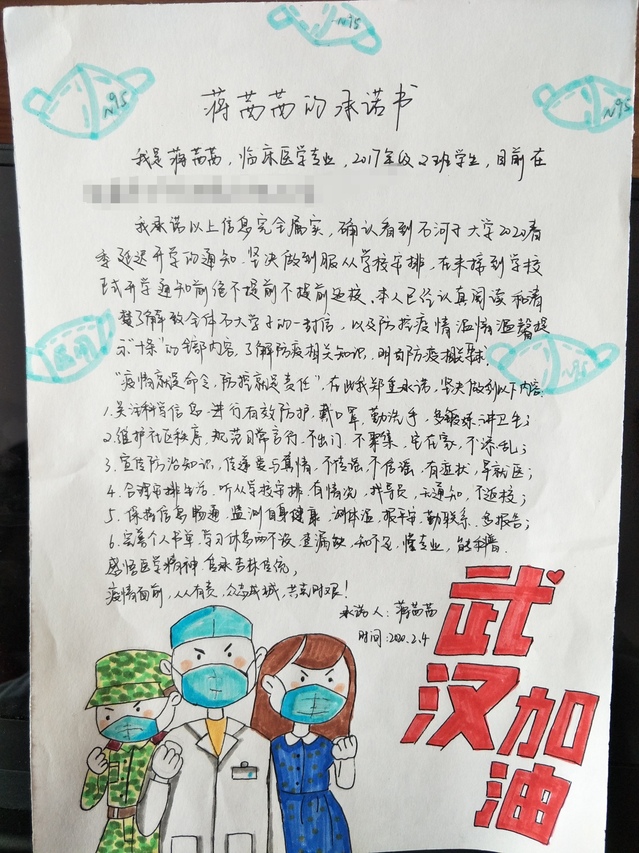 N95
N95
N95
医用
蒋茜茜的承诺书
我是蒋茜茜，临床医学专业，2017年级2班学生，目前在
我承诺以上信息完全属实，确认看到石河子大学2020春
季延迟开学的通知，坚决做到服从学校安排，在未接到学校
正式开学通知前绝不提前不提前返校。本人已经认真阅读和清
楚了解致全体石大学子的一封信，以及防控疫情温情温馨提
示"十条"的全部内容，了解防疫相关知识，明白防疫相关
"疫情就是命令，防控就是责任"，在此我郑重承诺，坚决做到以下内容：
1.关注科学信息，进行有效防护，戴口罩，勤洗手，多锻炼，讲卫生；
2.维护社区秩序，规范日常言行，不出门，不聚集，宅在家，不添乱；
3.宣传防治知识，传递爱与真情，不信谣，不传谣，有症状，早就医；
4.合理安排生活，听从学校安排，有情况，找导员，无通知，不返校；
5.保持信息畅通，监测自身健康，测体温，报平安，勤联系，多报告；
6.完善个人书单，学习休息两不误，查漏缺，知不足，懂专业，能科普。
感悟医学精神，息承杏林佳流，
疫情面前，人人有责，众志成城，共克时艰！
承诺人：蒋茜茜
时间：2020.2.4
武汉加油